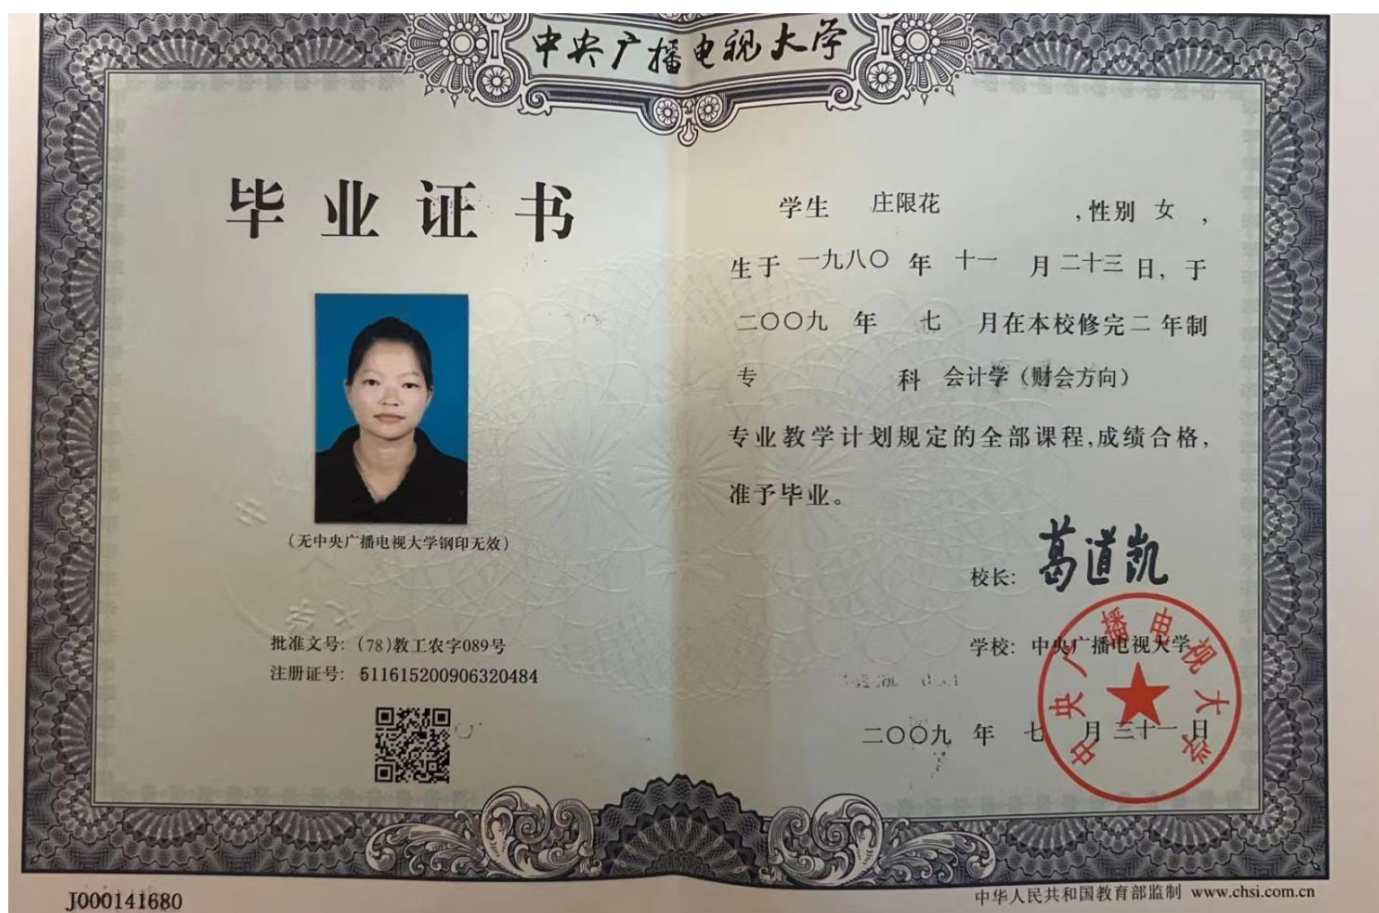 中央广播电视大学
毕业证书
(无中央广播电视大学钢印无效)
批准文号: (78)教工农字089号
注册证号: 511615200906320484
学生 庄限花 ,性别 女 ,
生于 一九八〇 年 十一 月 二十三 日, 于
二〇〇九 年 七 月在本校修完二 年制
专 科 会计学（财会方向）
专业教学计划规定的全部课程,成绩合格,
准予毕业。
校长: 葛道凯
学校: 中央广播电视大学
中央广播电视大学
二〇〇九 年 七 月 三十一 日
J000141680
中华人民共和国教育部监制 www.chsi.com.cn